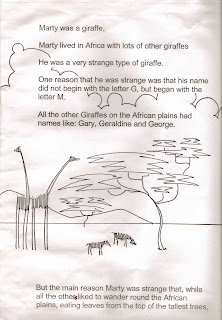 Marty was a giraffe,
Marty lived in Africa with lots of other giraffes
He was a very strange type of giraffe.
One reason that he was strange was that his name
did not begin with the letter G, but began with the
letter M.
All the other Giraffes on the African plains had
names like: Gary, Geraldine and George.
But the main reason Marty was strange that, while
all the other liked to wander round the African
plains, eating leaves from the top of the tallest trees,